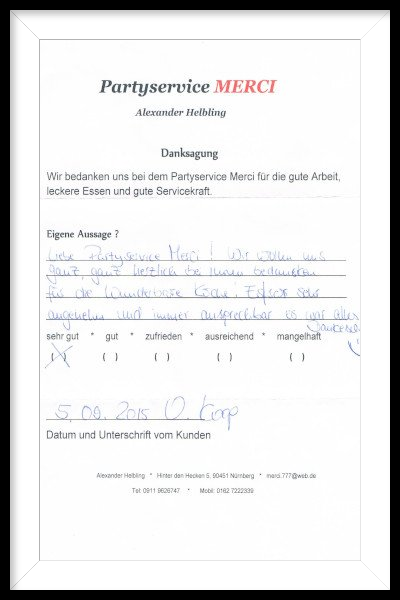 Partyservice MERCI
Alexander Helbling
Danksagung
Wir bedanken uns bei dem Partyservice Merci für die gute Arbeit,
leckere Essen und gute Servicekraft.
Eigene Aussage ?
Liebe Partyservice Merci! Wir wollen uns
ganz, ganz herzlich bei Ihnen bedanken
für die Wunderbare Küche!
angenehm und immer ansprechbar es war alles
Danke
sehr gut * gut * zufrieden * ausreichend * mangelhaft
(X) ( ) ( ) ( ) ( )
5.09.2015
Datum und Unterschrift vom Kunden
Alexander Helbling * Hinter den Hecken 5, 90451 Nürnberg * merci.777@web.de
Tel: 0911 9626747 * Mobil: 0162 7222339